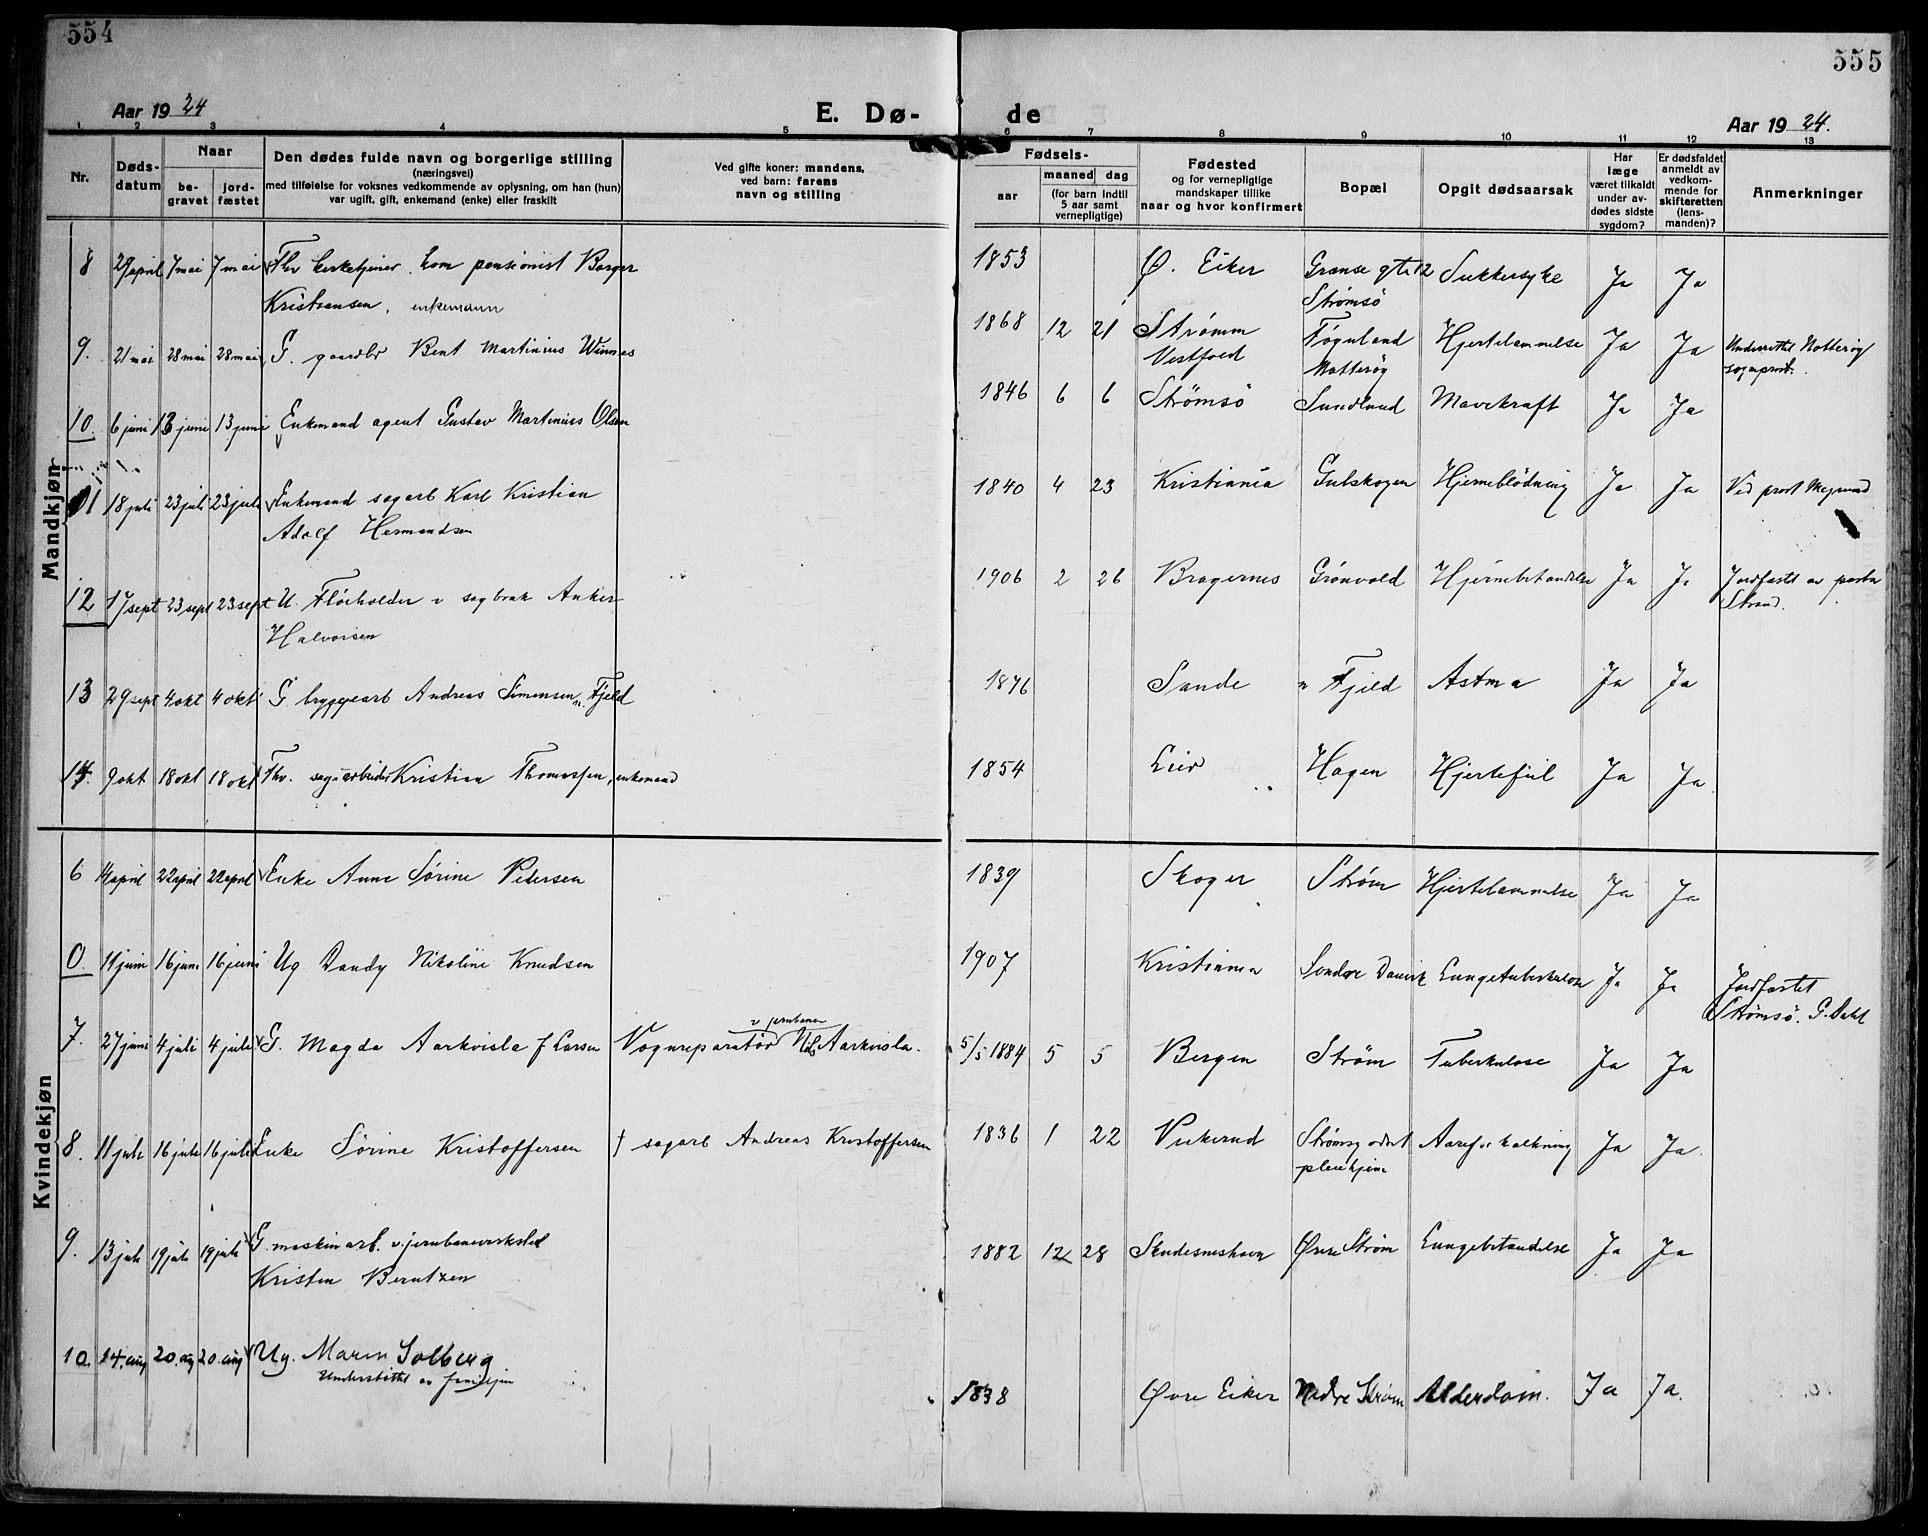 554
555
Aar 1924
E. Dø-
de
Aar 1924.
1 2 3 4 5 6 7 8 9 10 11 12 13
Nr.
Døds-
datum
Naar
be-
gravet
jord-
fæstet
Den dødes fulde navn og borgerlige stilling
(næringsvei)
med tilføielse for voksnes vedkommende av oplysning, om han (hun)
var ugift, gift, enkemand (enke) eller fraskilt
Ved gifte koner: mandens,
ved barn: farens
navn og stilling
Fødsels-
aar
maaned dag
(for barn indtil
5 aar samt
vernepligtige)
Fødested
og for vernepligtige
mandskaper tillike
naar og hvor konfirmert
Bopæl
Opgit dødsaarsak
Har
læge
været tilkaldt
under av-
dødes sidste
sygdom?
Er dødsfaldet
anmeldt av
vedkom-
mende for
skifteretten
(lens-
manden)?
Anmerkninger
Mandkjøn
8 29 april 7 mai 7 mai Fhv kirketjener, kom pensionist Borger 1853 Ø. Eiker Grænse gt 12 Sukkersyke Ja Ja
Kristiansen, enkemann Strømsö
9. 21 mai 28 mai 28 mai G. gaardbr Bent Martinius Winnes 1868 12 21 Strømm Føynland Hjertelammelse Ja Ja Underrettet Notterøy
Vestfold Notterøy sogneprest.
10. 6 juni 13 juni 13 juni Enkemand agent Gustav Martinius Olsen 1846 6 6 Strømsö Sundland Mavekraft Ja Ja
11 18 juli 23 juli 23 juli Enkemand sagarb Karl Kristian 1840 4 23 Kristiania Gulskogen Hjerneblödning Ja Ja Ved prost
Adolf Hermandsen
12 17 sept 23 sept 23 sept U. Flöiholder v sagbruk Anker 1906 2 26 Bragernes Grönvold Hjernebetændelse Ja Ja Jordfæstet av pastor
Halvorsen Strand.
13 29 sept 4 okt 4 okt G bryggearb Andreas Simensen n. Fjeld 1876 Sande n Fjeld Astma Ja Ja
14. 9 okt 18 okt 18 okt Fhv. sagarbeider Kristian Thomassen, enkemand 1854 Lier Hagen Hjertefeil Ja Ja
Kvindekjøn
6 14 april 22 april 22 april Enke Anne Sørine Pedersen 1839 Skoger Strøm Hjertelammelse Ja Ja
0. 11 juni 16 juni 16 juni Ug Dandy Nikoline Knudsen 1907 Kristiania Søndre Danvik Lungetuberkulose Ja Ja Jordfæstet
Strømsö. G. Dahl
7. 27 juni 4 juli 4 juli G. Magda Aarkvisla f Larsen Vognreparatør v jernbanen Nils Aarkvisla. 5/5 1884 5 5 Bergen Strøm Tuberkulose Ja Ja
8. 11 juli 16 juli 16 juli Enke Sørine Kristoffersen † sagarb Andreas Kristoffersen 1836 1 22 Vikerud Strømsg Aareforkalkning Ja Ja
pleiehjem
9. 13 juli 19 juli 19 juli G. maskinarb. v. jernbaneverksted 1882 12 28 Skudesneshavn Øvre Strøm Lungebetændelse Ja Ja
Kristen Berntzen
10. 14. aug 20. aug 20. aug Ug. Maren Solberg 1838 Øvre Eiker Nedre Strøm Alderdom. Ja Ja.
Understöttet av familjen